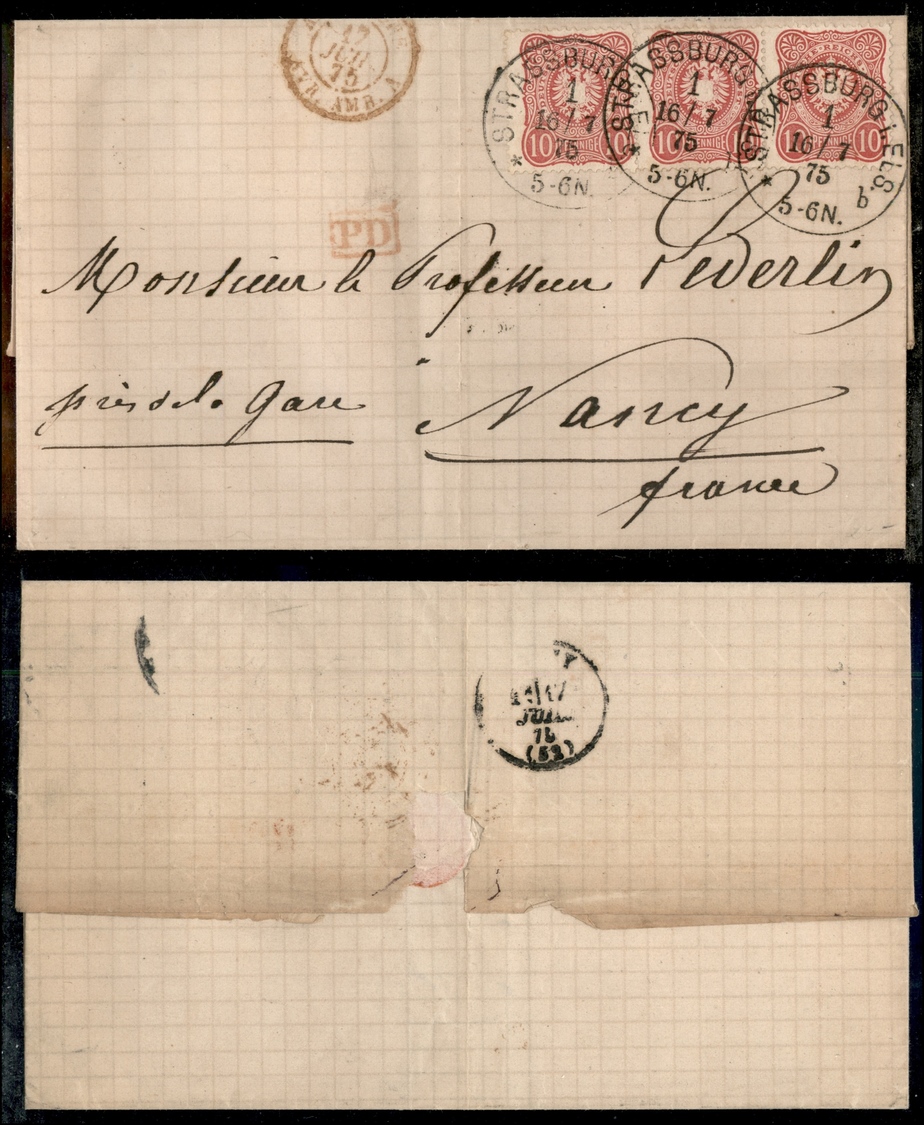 17
JUIL
75
AMB. A
STRASSBURG
1
16/7
75
5-6N.
STRASSBURG
1
16/7
75
5-6N.
STRASSBURG I. ELS.
1
16/7
75
5-6N. b
10
10 PFENNIGE
10 PFENNIGE 10
PD
Monsieur le Professeur Oederlin
près de la Gare
Nancy
france
17
JUIL
75
(52)